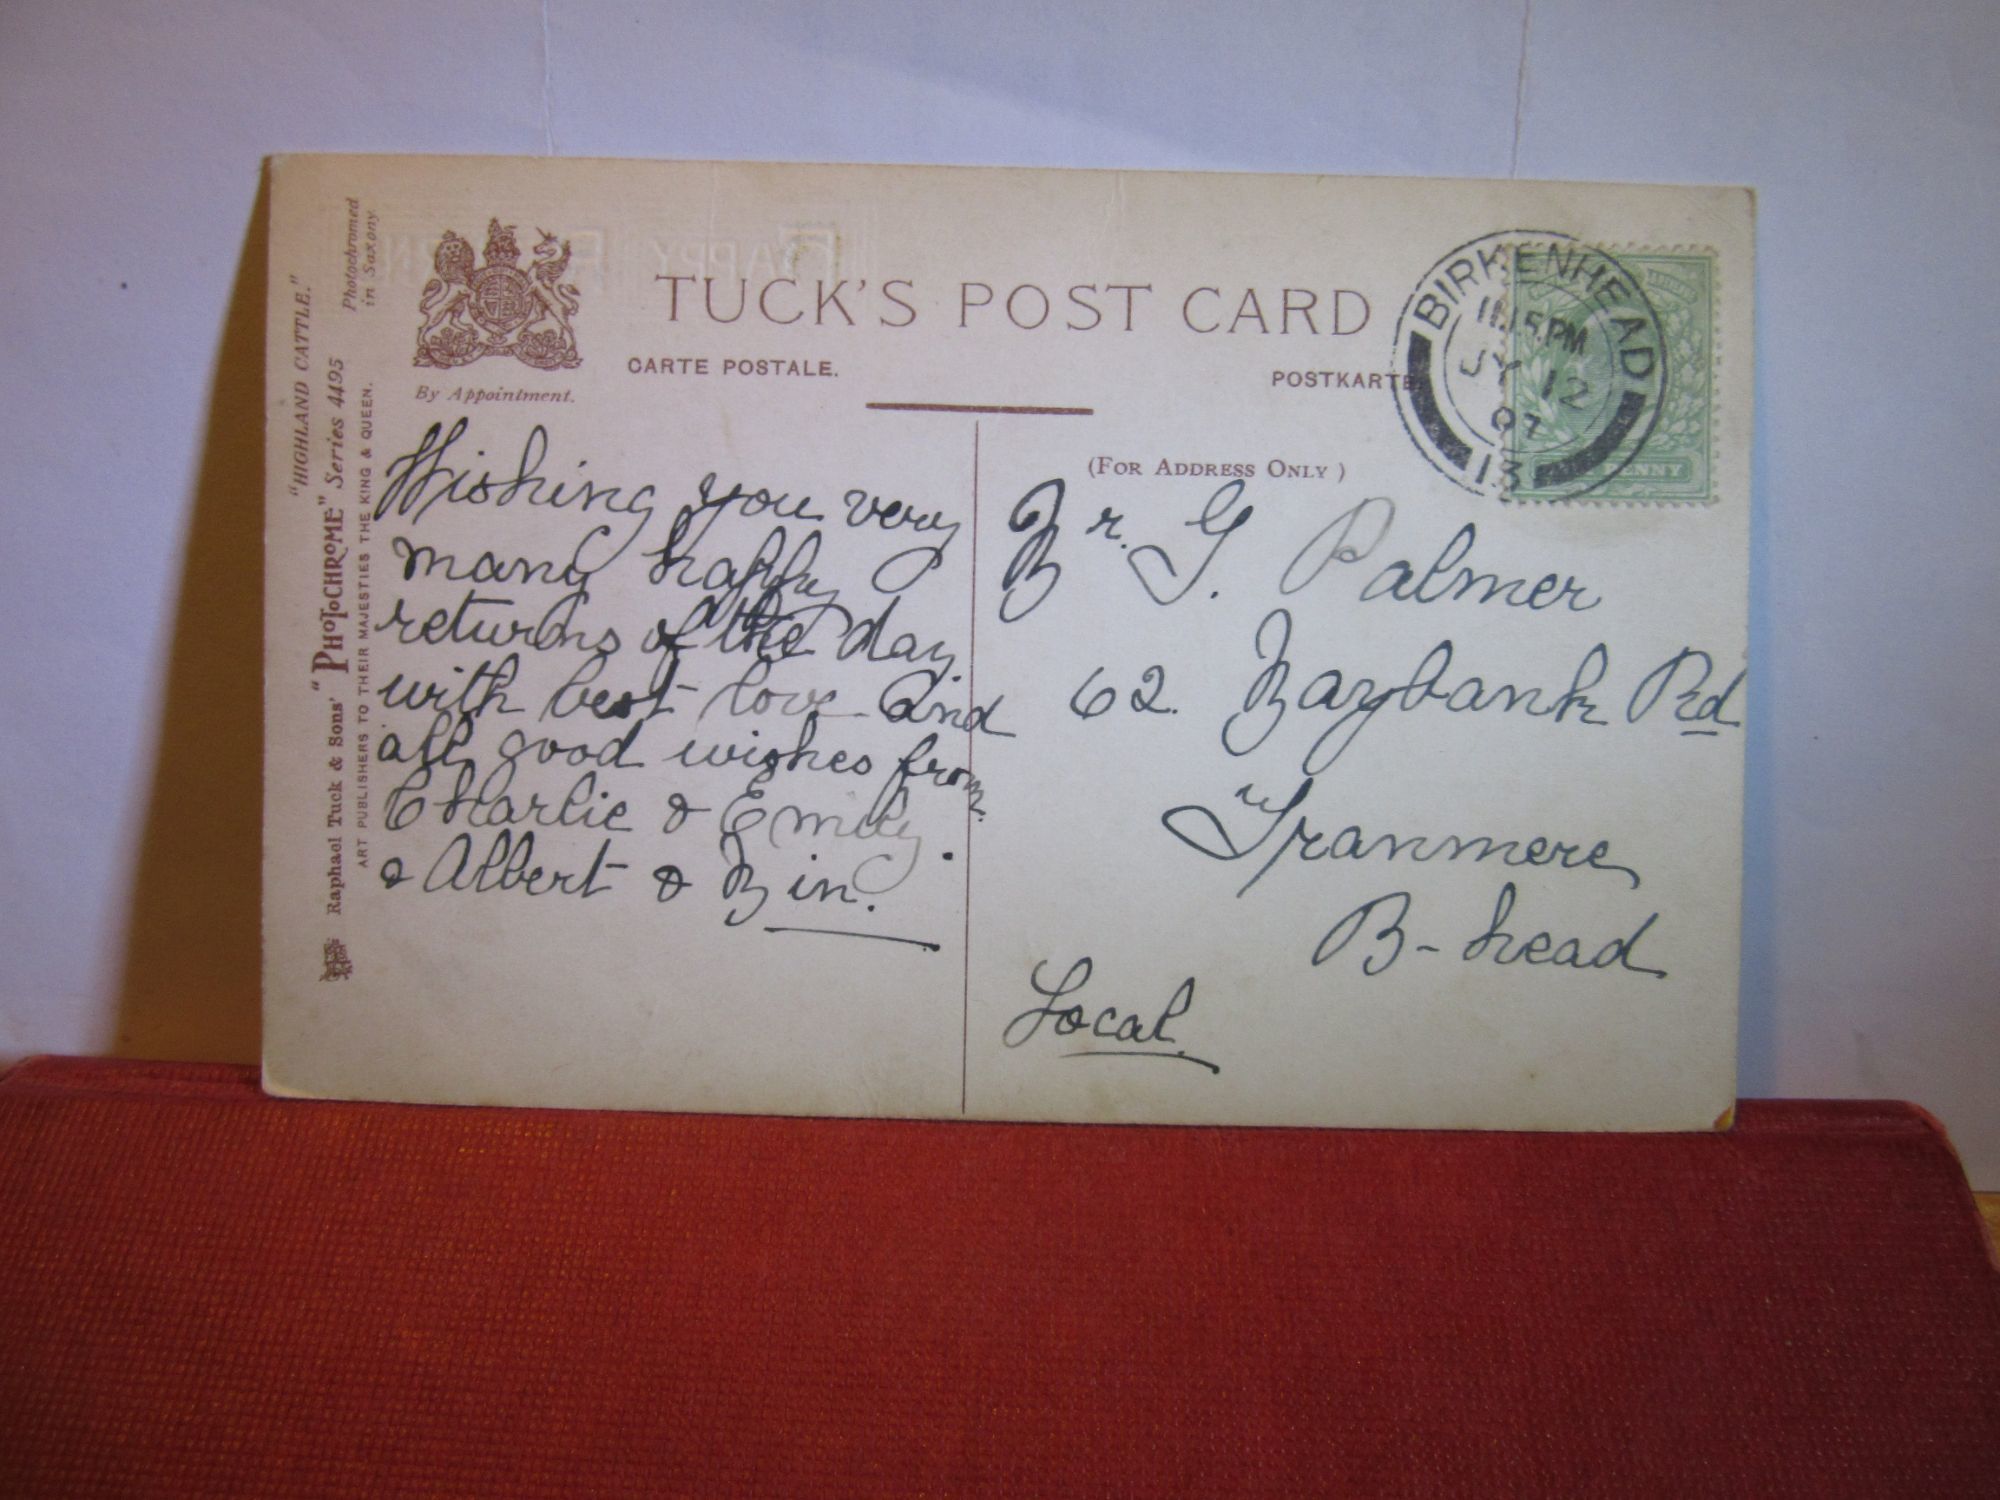 "HIGHLAND CATTLE."
Photochromed
in Saxony
Raphael Tuck & Sons' "PHOTOCHROME" Series 4495
ART PUBLISHERS TO THEIR MAJESTIES THE KING & QUEEN.
By Appointment.
TUCK'S POST CARD
CARTE POSTALE.
POSTKARTE
(FOR ADDRESS ONLY)
BIRKENHEAD
11.15 PM
JY 12
07
13
PENNY
Wishing you very
many happy
returns of the day
with best love and
all good wishes from
Charlie & Emily.
& Albert & Bin.
Mr. G. Palmer
62. Baybank Rd
Tranmere
B-head
Local.